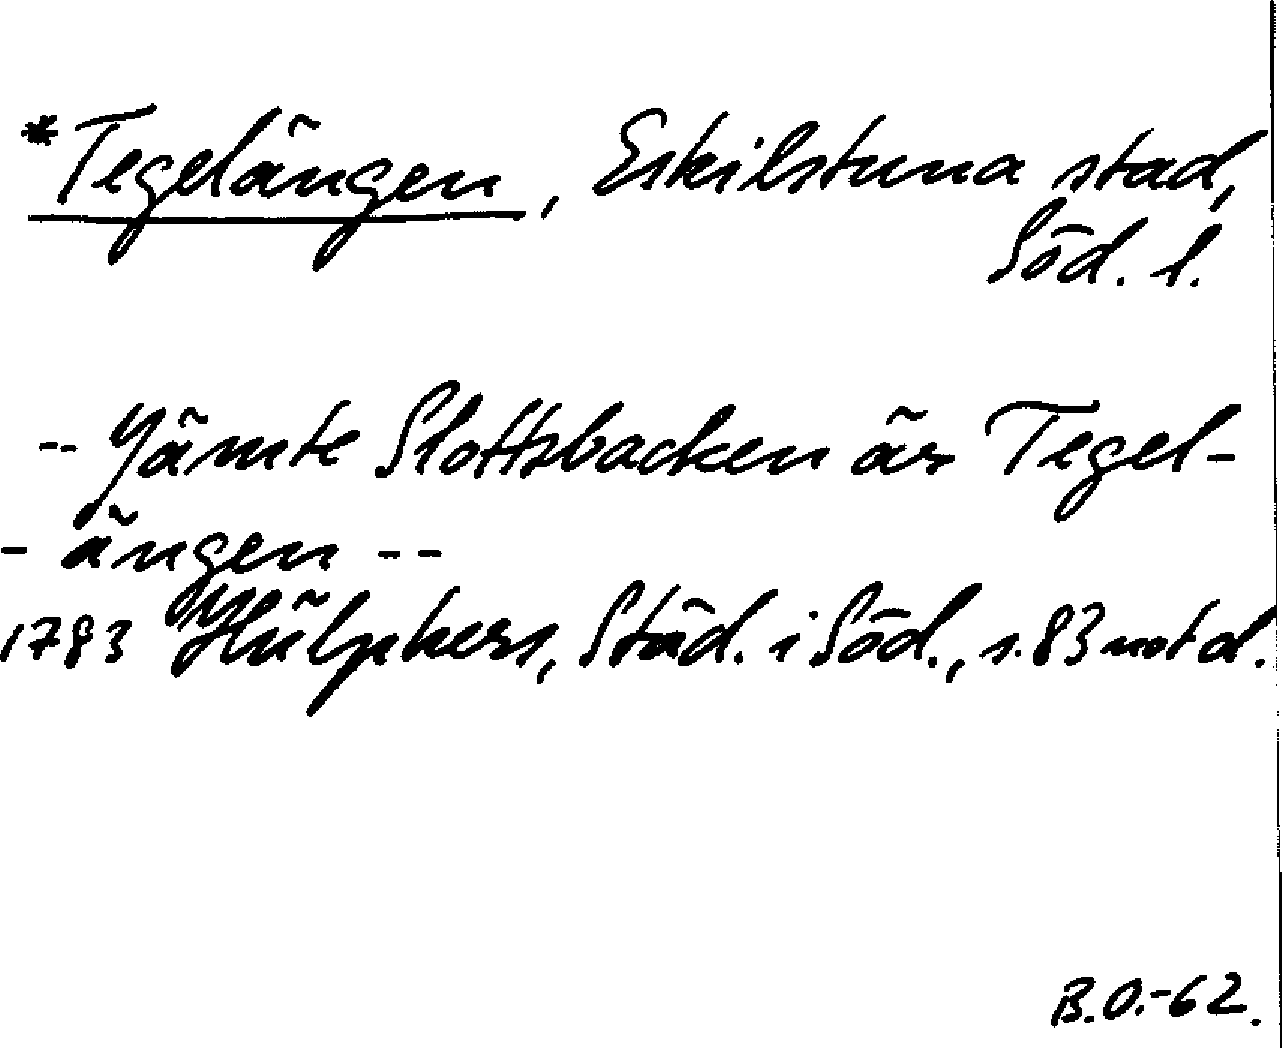 *Tegelängen, Eskilstuna stad,
Söd. l.
-- Jämte Slottsbacken är Tegel-
- ängen --
1783 Hülphers, Städ. i Söd., s. 83 not d.
B.O.-62.